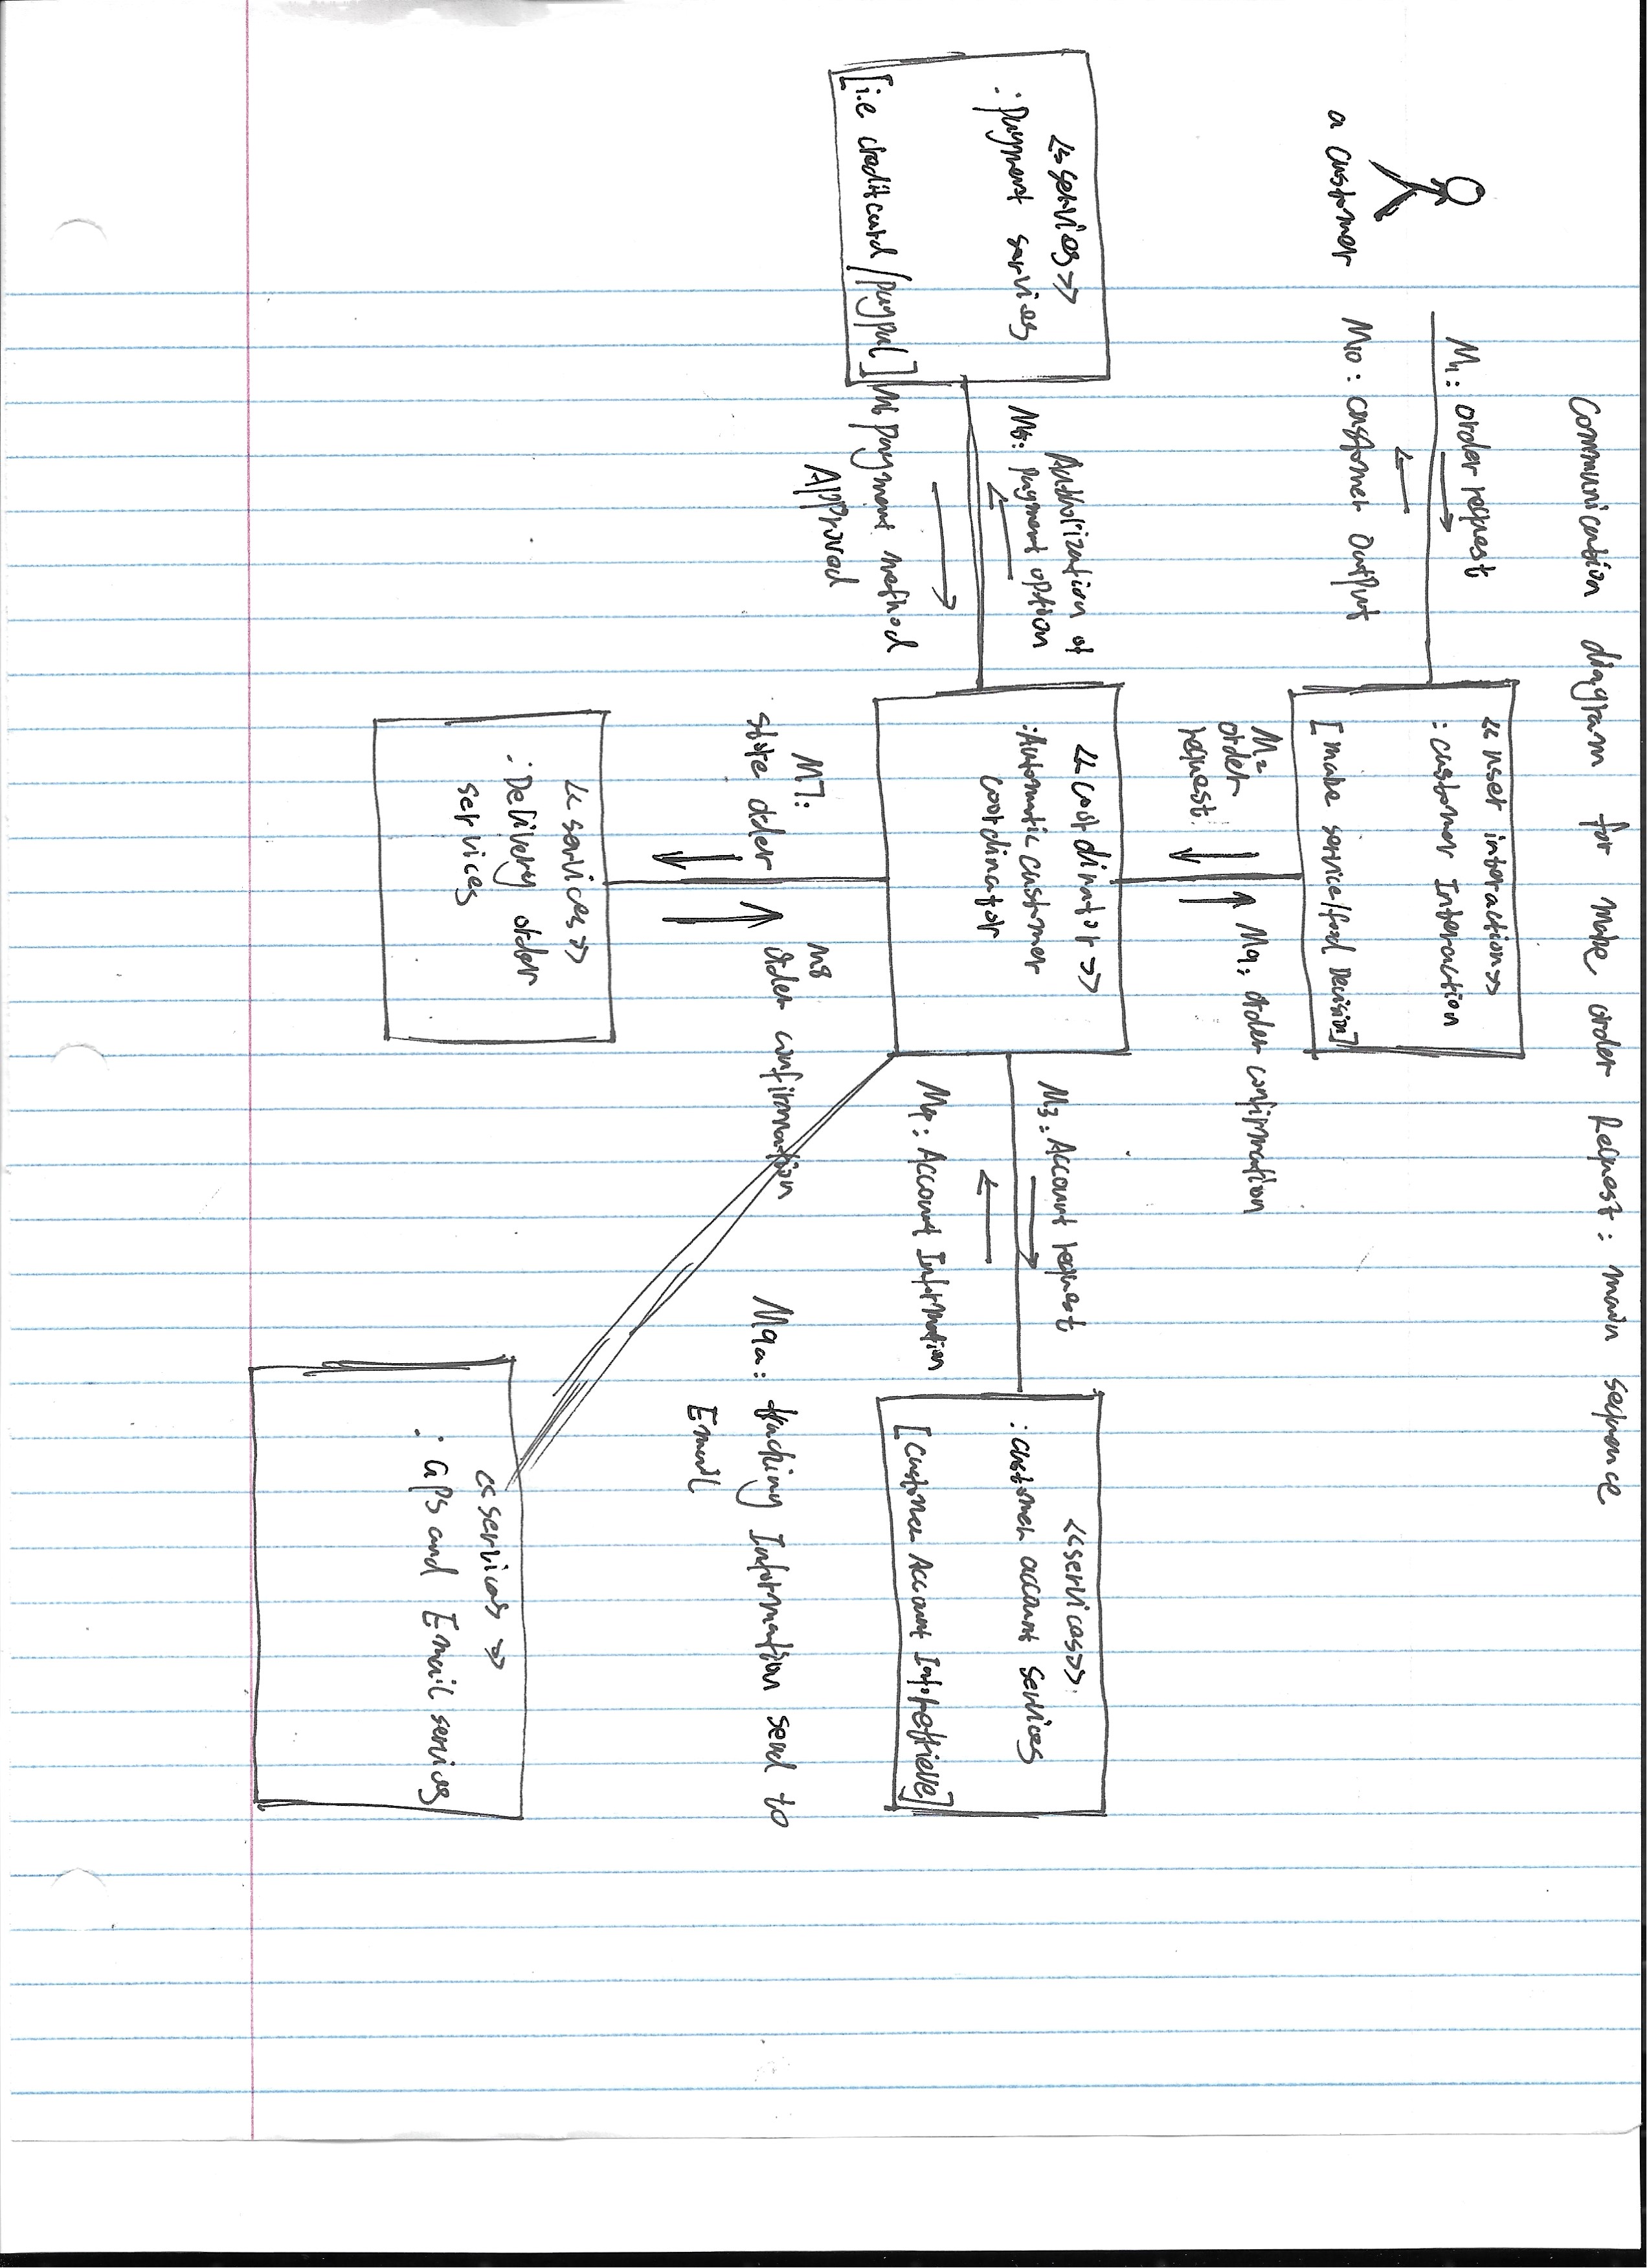 Communication diagram for make order Request: main sequence
<< user interaction>>
: customer Interaction
[make service/food Decision]
M1: order request
M10: customer Output
a customer
M2
order
request
M9: Order confirmation
<<services>>
: payment services
[i.e creditcard/paypal]
Authorization of
M5: payment option
M6 payment method
Approved
<<coordinator>>
:Automatic customer
coordinator
M3: Account request
M4: Account Information
<<services>>
: customer account services
[Customer Account Info retrieve]
M7:
store order
M8
Order confirmation
M9a: tracking Information send to
Email
<< services >>
: Delivery order
services
<< services >>
: GPS and Email services